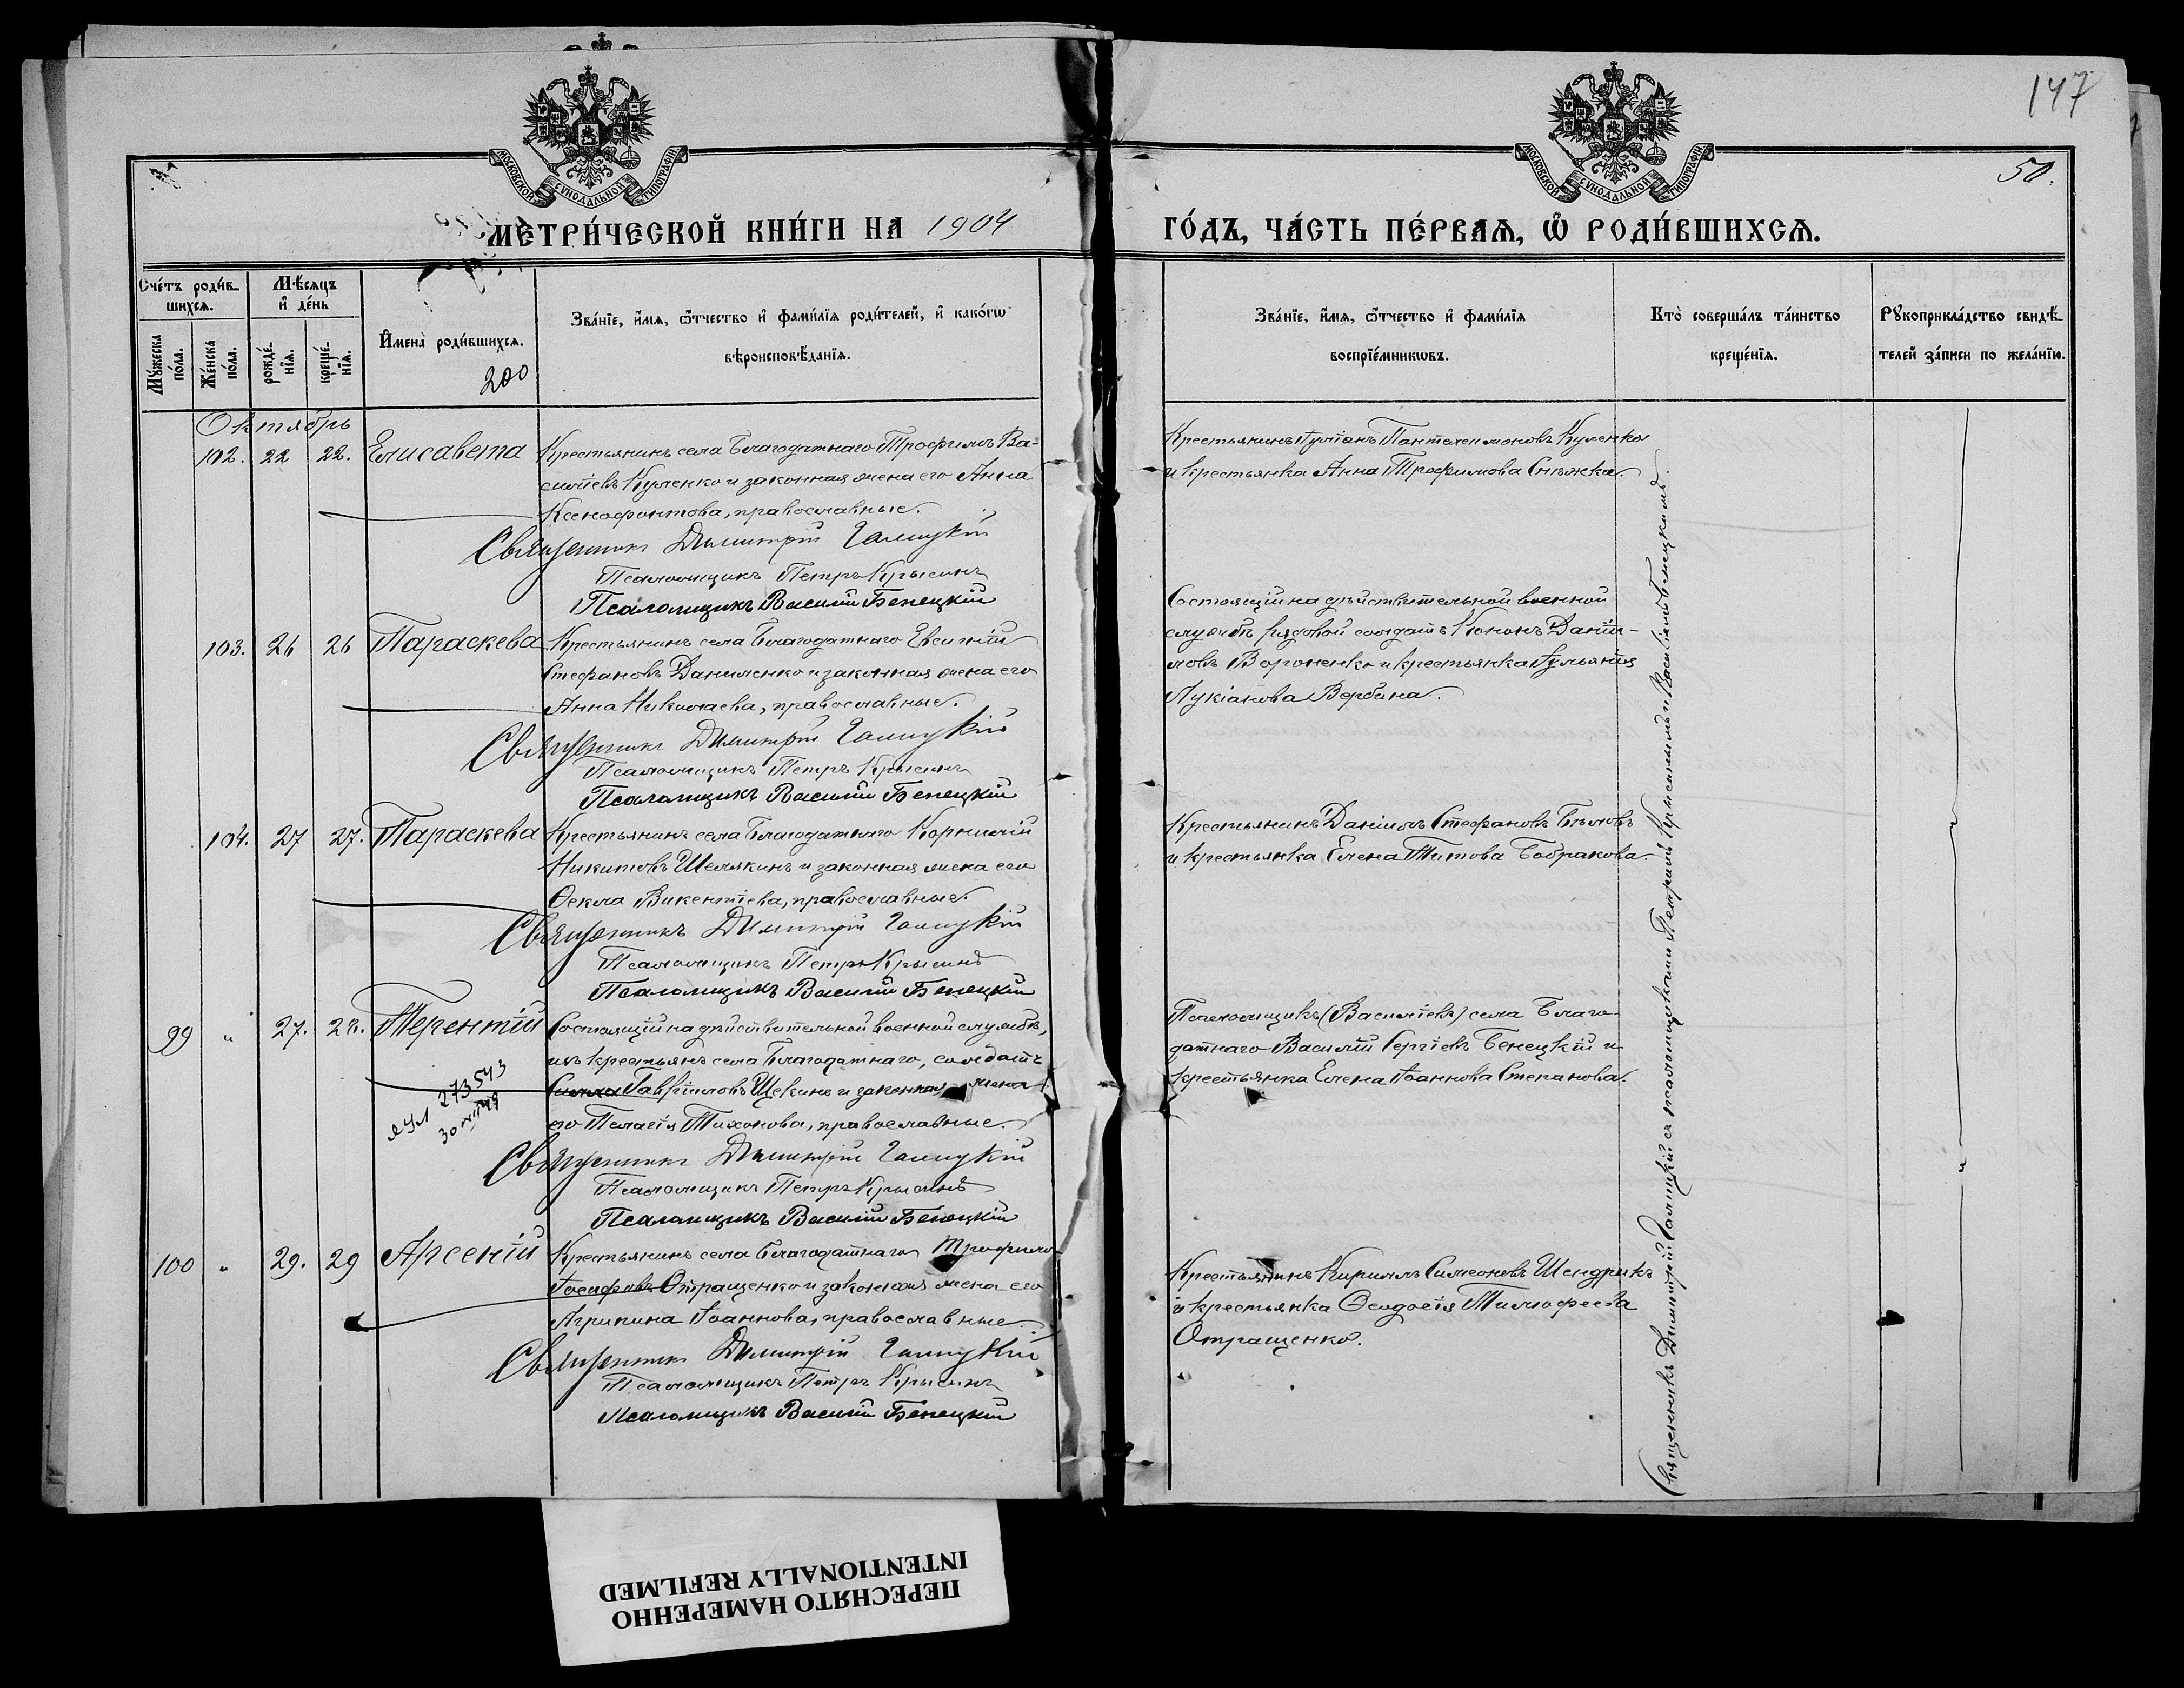 147
50.
МОСКОВСКОЙ СѴНОДАЛЬНОЙ ТИПОГРАФІИ
МОСКОВСКОЙ СѴНОДАЛЬНОЙ ТИПОГРАФІИ
МЕТРИ́ЧЕСКОЙ КНИ́ГИ НА 1904
ГО́ДЪ, ЧА́СТЬ ПЕ́РВАѦ, Ѡ҆ РОДИ́ВШИХСѦ.
Сче́тъ роди́в-
шихсѧ.
Мꙋ́жеска по́ла.
Же́нска по́ла.
Мѣ́сѧцъ
и҆ де́нь
рожде́-
нїѧ.
креще́-
нїѧ.
И҆мена̀ роди́вшихсѧ.
200
Зва́нїе, и҆́мѧ, ѻ҆́тчество и҆ фами́лїѧ роди́телей, и҆ како́гѡ
вѣроисповѣ́данїѧ.
Зва́нїе, и҆́мѧ, ѻ҆́тчество и҆ фами́лїѧ
воспрїе́мникѡвъ.
Кто̀ соверша́лъ та́инство
креще́нїѧ.
Рꙋкоприкла́дство свидѣ́-
телей за́писи по жела́нїю.
Октябрь
102. 22 22. Елисавета
Крестьянинъ села Благодатнаго Трофимъ Ва-
силіевъ Куленко и законная жена его Анна
Ксенофонтова, православные.
Священникъ Димитрій Галицкій
Псаломщикъ Петръ Крысинъ
Псаломщикъ Василій Бенецкій
Крестьянинъ Іуліанъ Пантелеимоновъ Куленко
и крестьянка Анна Трофимова Снѣжка.
103. 26 26 Параскева
Крестьянинъ села Благодатнаго Евсигній
Стефановъ Даниленко и законная жена его
Анна Николаева, православные.
Священникъ Димитрій Галицкій
Псаломщикъ Петръ Крысинъ
Псаломщикъ Василій Бенецкій
Состоящій на дѣйствительной военной
службѣ рядовой солдатъ Кононъ Даніи-
ловъ Вороненко и крестьянка Іульянія
Лукіанова Вербина.
104. 27 27. Параскева
Крестьянинъ села Благодатнаго Корнилій
Никитовъ Шелякинъ и законная жена его
Ѳекла Викентіева, православные.
Священникъ Димитрій Галицкій
Псаломщикъ Петръ Крысинъ
Псаломщикъ Василій Бенецкій
Крестьянинъ Даніилъ Стефановъ Бѣловъ
и крестьянка Елена Титова Бобракова.
99 " 27. 28. Терентій
273543
Состоящій на дѣйствительной военной службѣ,
изъ крестьянъ села Благодатнаго, солдатъ
Гавріиловъ Щекинъ и законная жена
его Пелагія Тихонова, православные.
Священникъ Димитрій Галицкій
Псаломщикъ Петръ Крысинъ
Псаломщикъ Василій Бенецкій
Псаломщикъ (Василіевъ) села Благо-
датнаго Василій Сергіевъ Бенецкій и
крестьянка Елена Іоаннова Степанова.
100 " 29. 29 Арсеній
Крестьянинъ села Благодатнаго Трофимъ
Іосифовъ Отращенко и законная жена его
Агрипина Іоаннова, православные.
Священникъ Димитрій Галицкій
Псаломщикъ Петръ Крысинъ
Псаломщикъ Василій Бенецкій
Крестьянинъ Кириллъ Симеоновъ Шендрикъ
и крестьянка Ѳеодосія Тимофеева
Отращенко.
Священникъ Димитрій Галицкій съ псаломщиками Петромъ Крысинымъ и Василіемъ Бенецкимъ.
ПЕРЕСНЯТО НАМЕРЕННО
INTENTIONALLY REFILMED